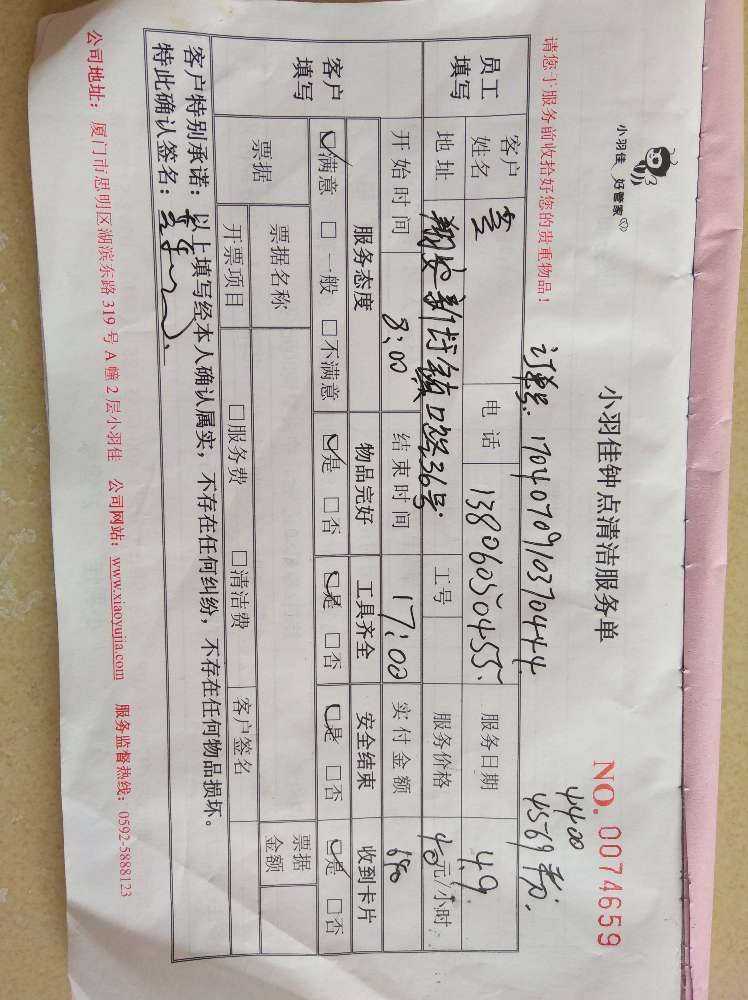 小羽佳 好管家
小羽佳钟点清洁服务单
NO. 0074659
请您于服务前收拾好您的贵重物品!
订单号: 1704070910370444
4400
45-69
员工填写
客户姓名
电话 13806050455
服务日期 4.9
地址 翔安新圩镇口路36号
工号
服务价格 40元/小时
开始时间 8:00
结束时间 17:00
实付金额
客户填写
服务态度 物品完好 工具齐全 安全结束 收到卡片
☑满意 □一般 □不满意 ☑是 □否 ☑是 □否 ☑是 □否 ☑是 □否
票据
票据名称
票据金额
开票项目 □服务费 □清洁费 客户签名
客户特别承诺:以上填写经本人确认属实,不存在任何纠纷,不存在任何物品损坏。
特此确认签名:
公司地址:厦门市思明区湖滨东路 319 号 A 幢 2 层小羽佳 公司网站:www.xiaoyujia.com 服务监督热线:0592-5888123